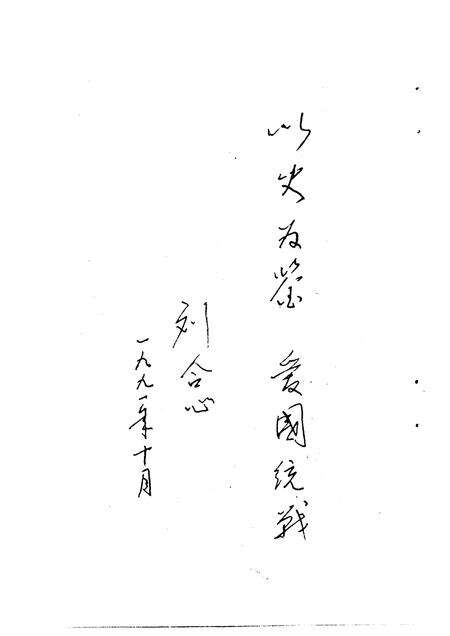 以史为鉴 爱國统战
刘合心
一九九一年十月